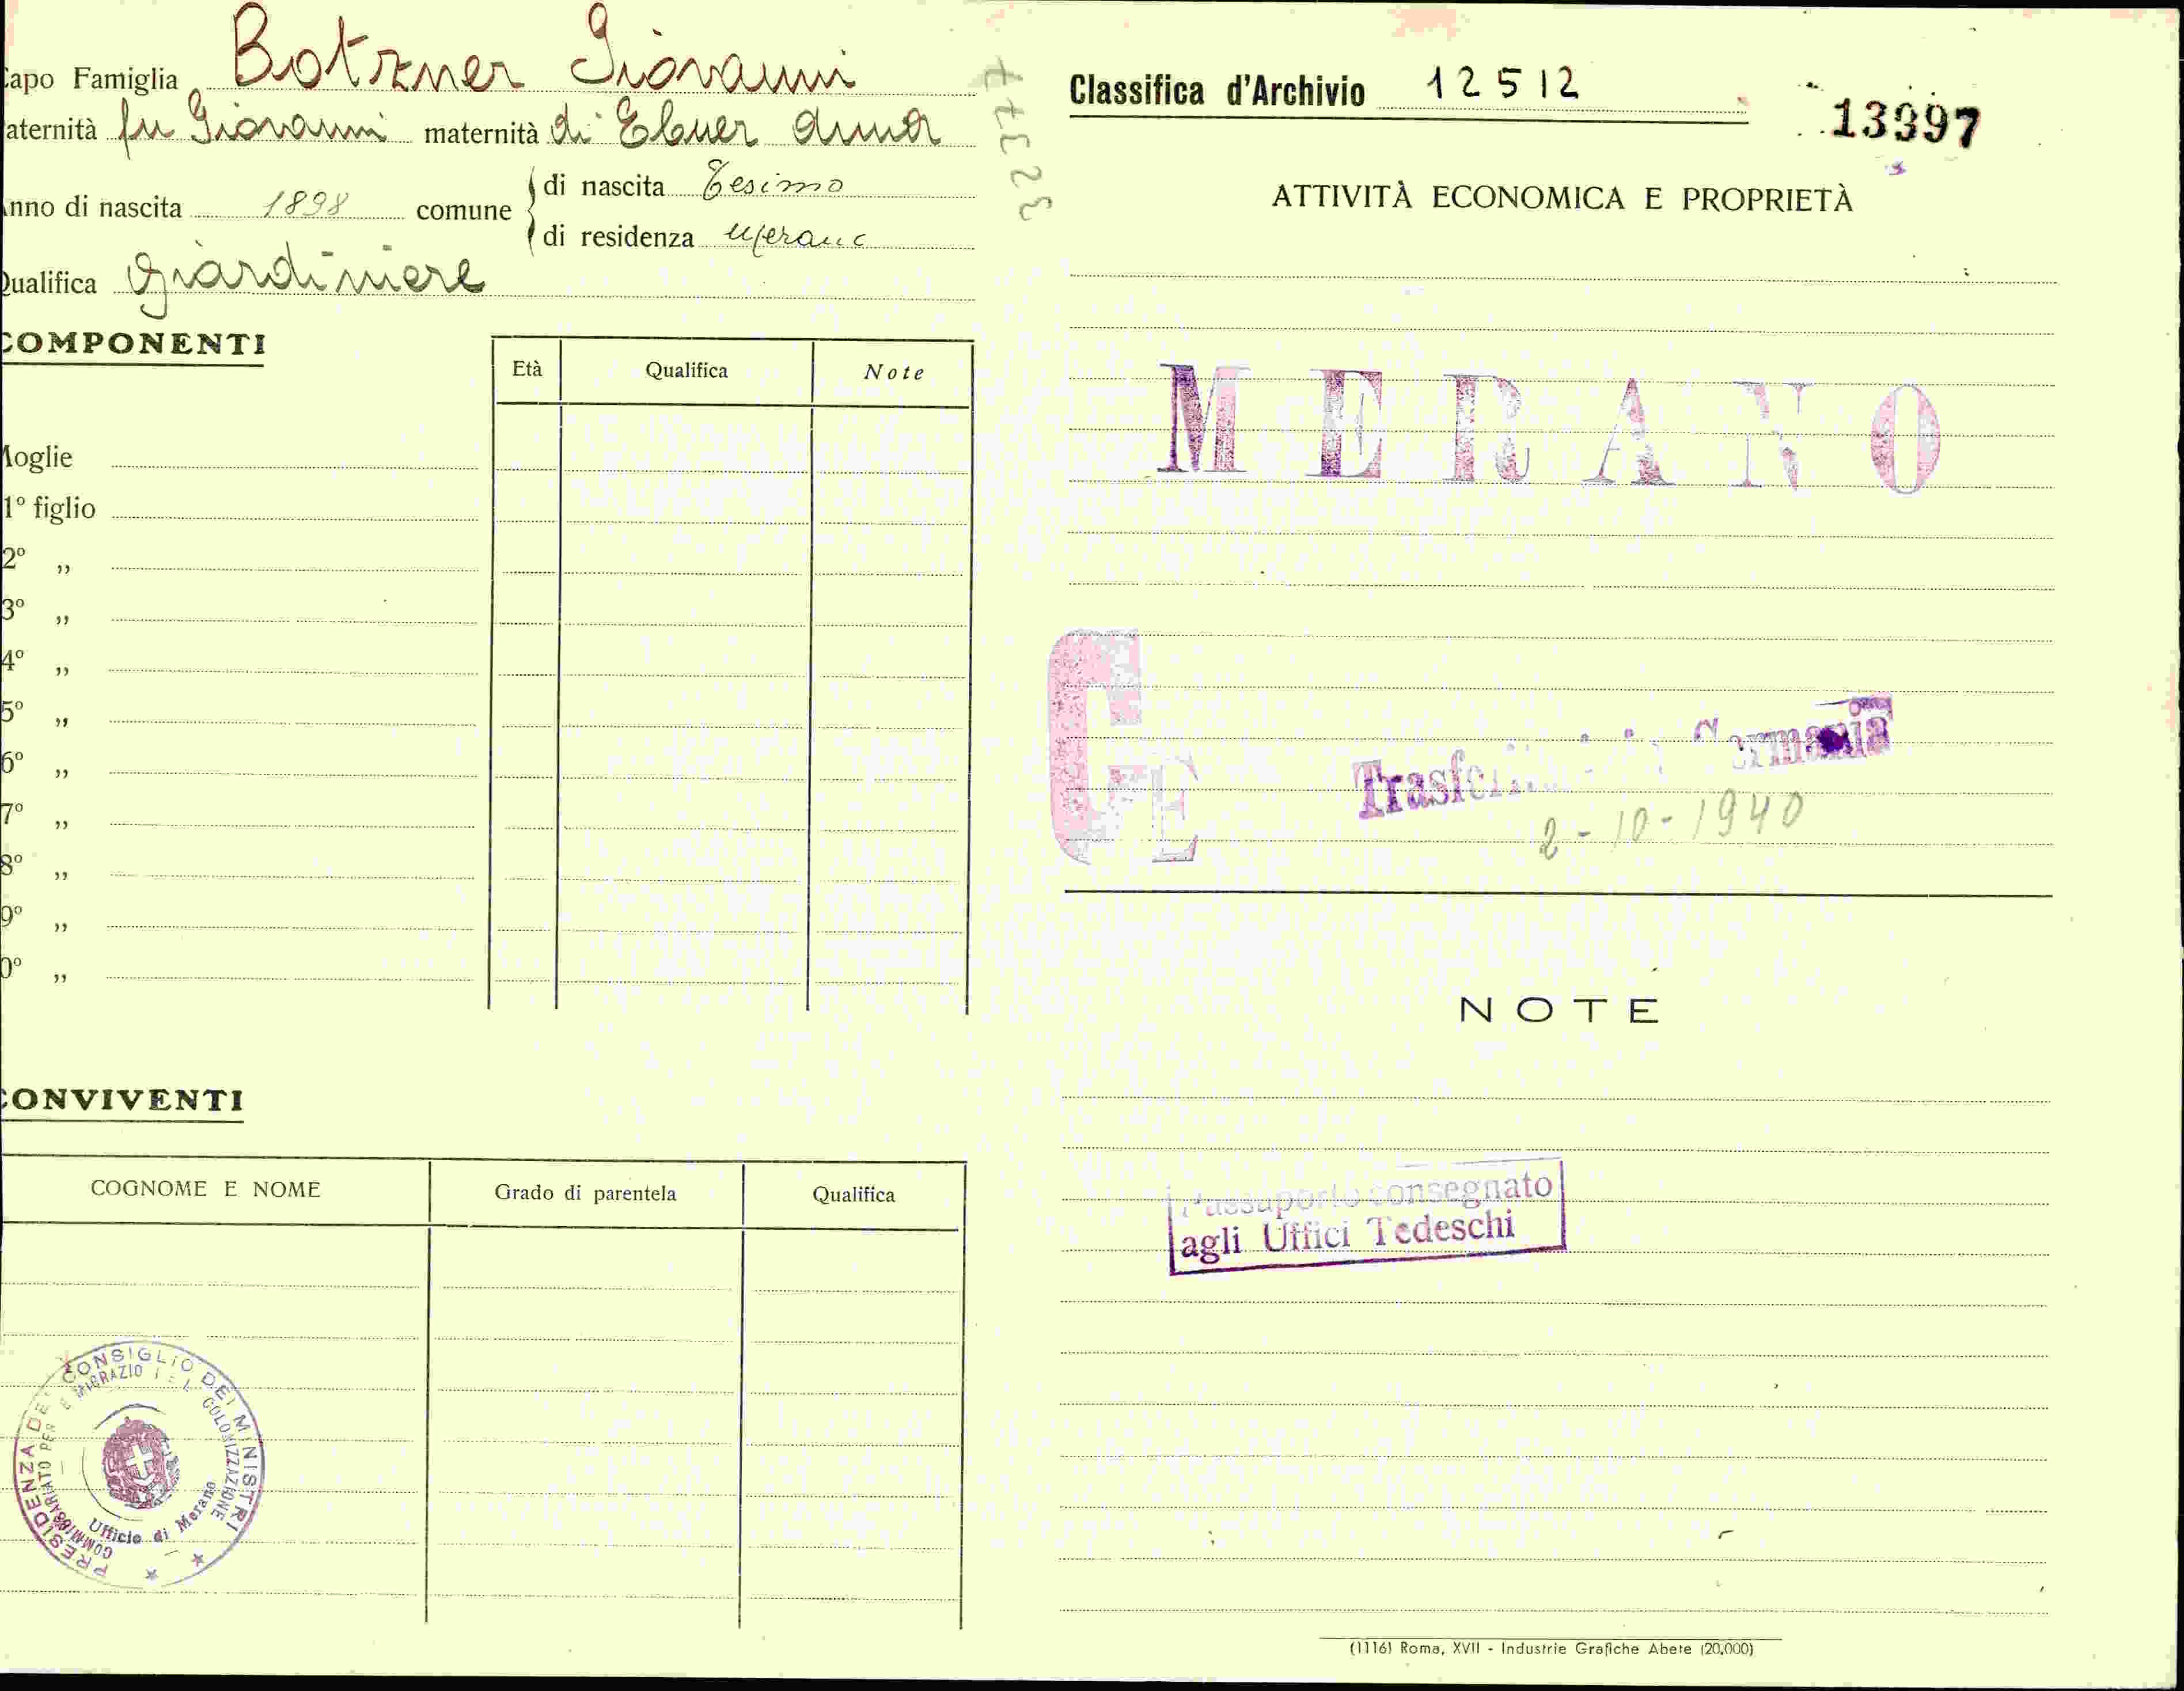 Capo Famiglia Botzner Giovanni
aternità fu Giovanni maternità di Ebner Anna
nno di nascita 1898 comune di nascita Tesimo
di residenza Merano
Qualifica giardiniere
COMPONENTI
Età Qualifica Note
Moglie
1° figlio
2° „
3° „
4° „
5° „
6° „
7° „
8° „
9° „
0° „
CONVIVENTI
COGNOME E NOME Grado di parentela Qualifica
PRESIDENZA DEL CONSIGLIO DEI MINISTRI
COMMISSARIATO PER E MIGRAZIO E L COLONIZZAZIONE
Ufficio di Merano
Classifica d'Archivio 12512
13397
ATTIVITÀ ECONOMICA E PROPRIETÀ
MERANO
GE
Trasferi in Germania
2-10-1940
NOTE
Passaporto consegnato
agli Uffici Tedeschi
(1116) Roma, XVII - Industrie Grafiche Abete (20.000)